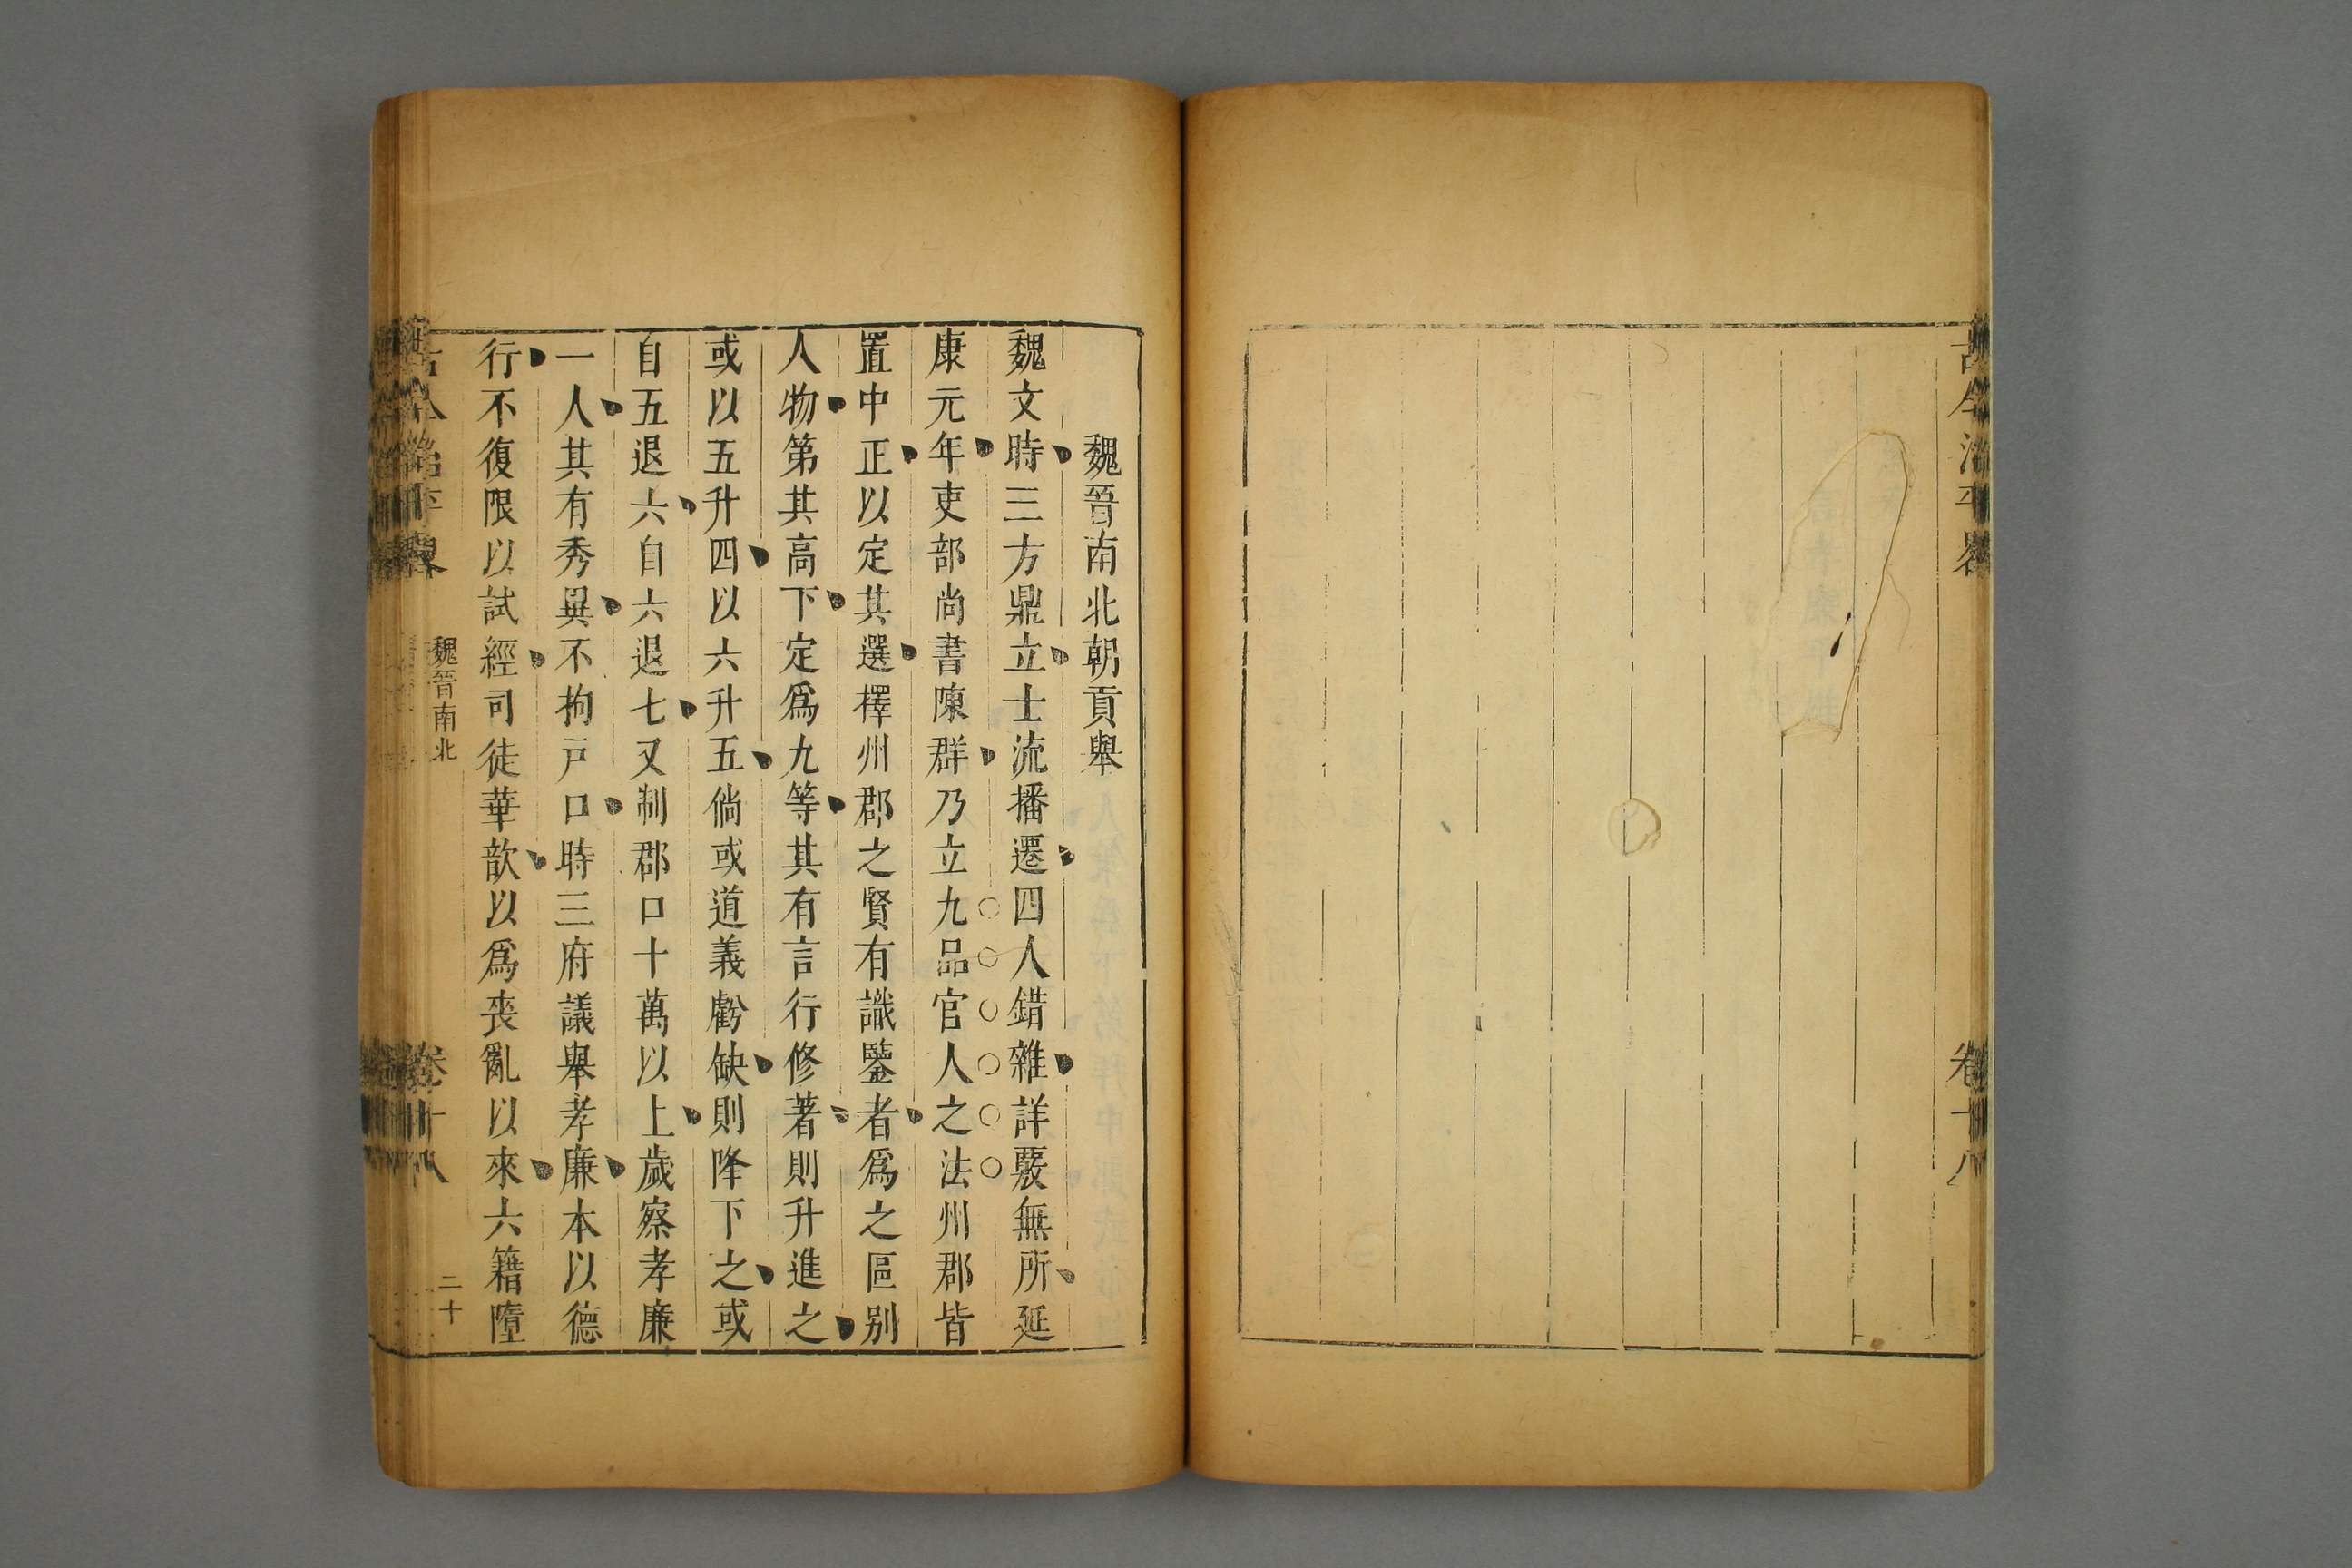 古今治平畧
卷十八
魏晉南北朝貢舉
魏文時三方鼎立士流播遷四人錯雜詳覈無所延
康元年吏部尚書陳群乃立九品官人之法州郡皆
置中正以定其選擇州郡之賢有識鑒者爲之區别
人物第其高下定爲九等其有言行修著則升進之
或以五升四以六升五倘或道義虧缺則降下之或
自五退六自六退七又制郡口十萬以上歲察孝廉
一人其有秀異不拘戸口時三府議舉孝廉本以德
行不復限以試經司徒華歆以爲喪亂以來六籍墮
魏晉南北
卷十八
二十